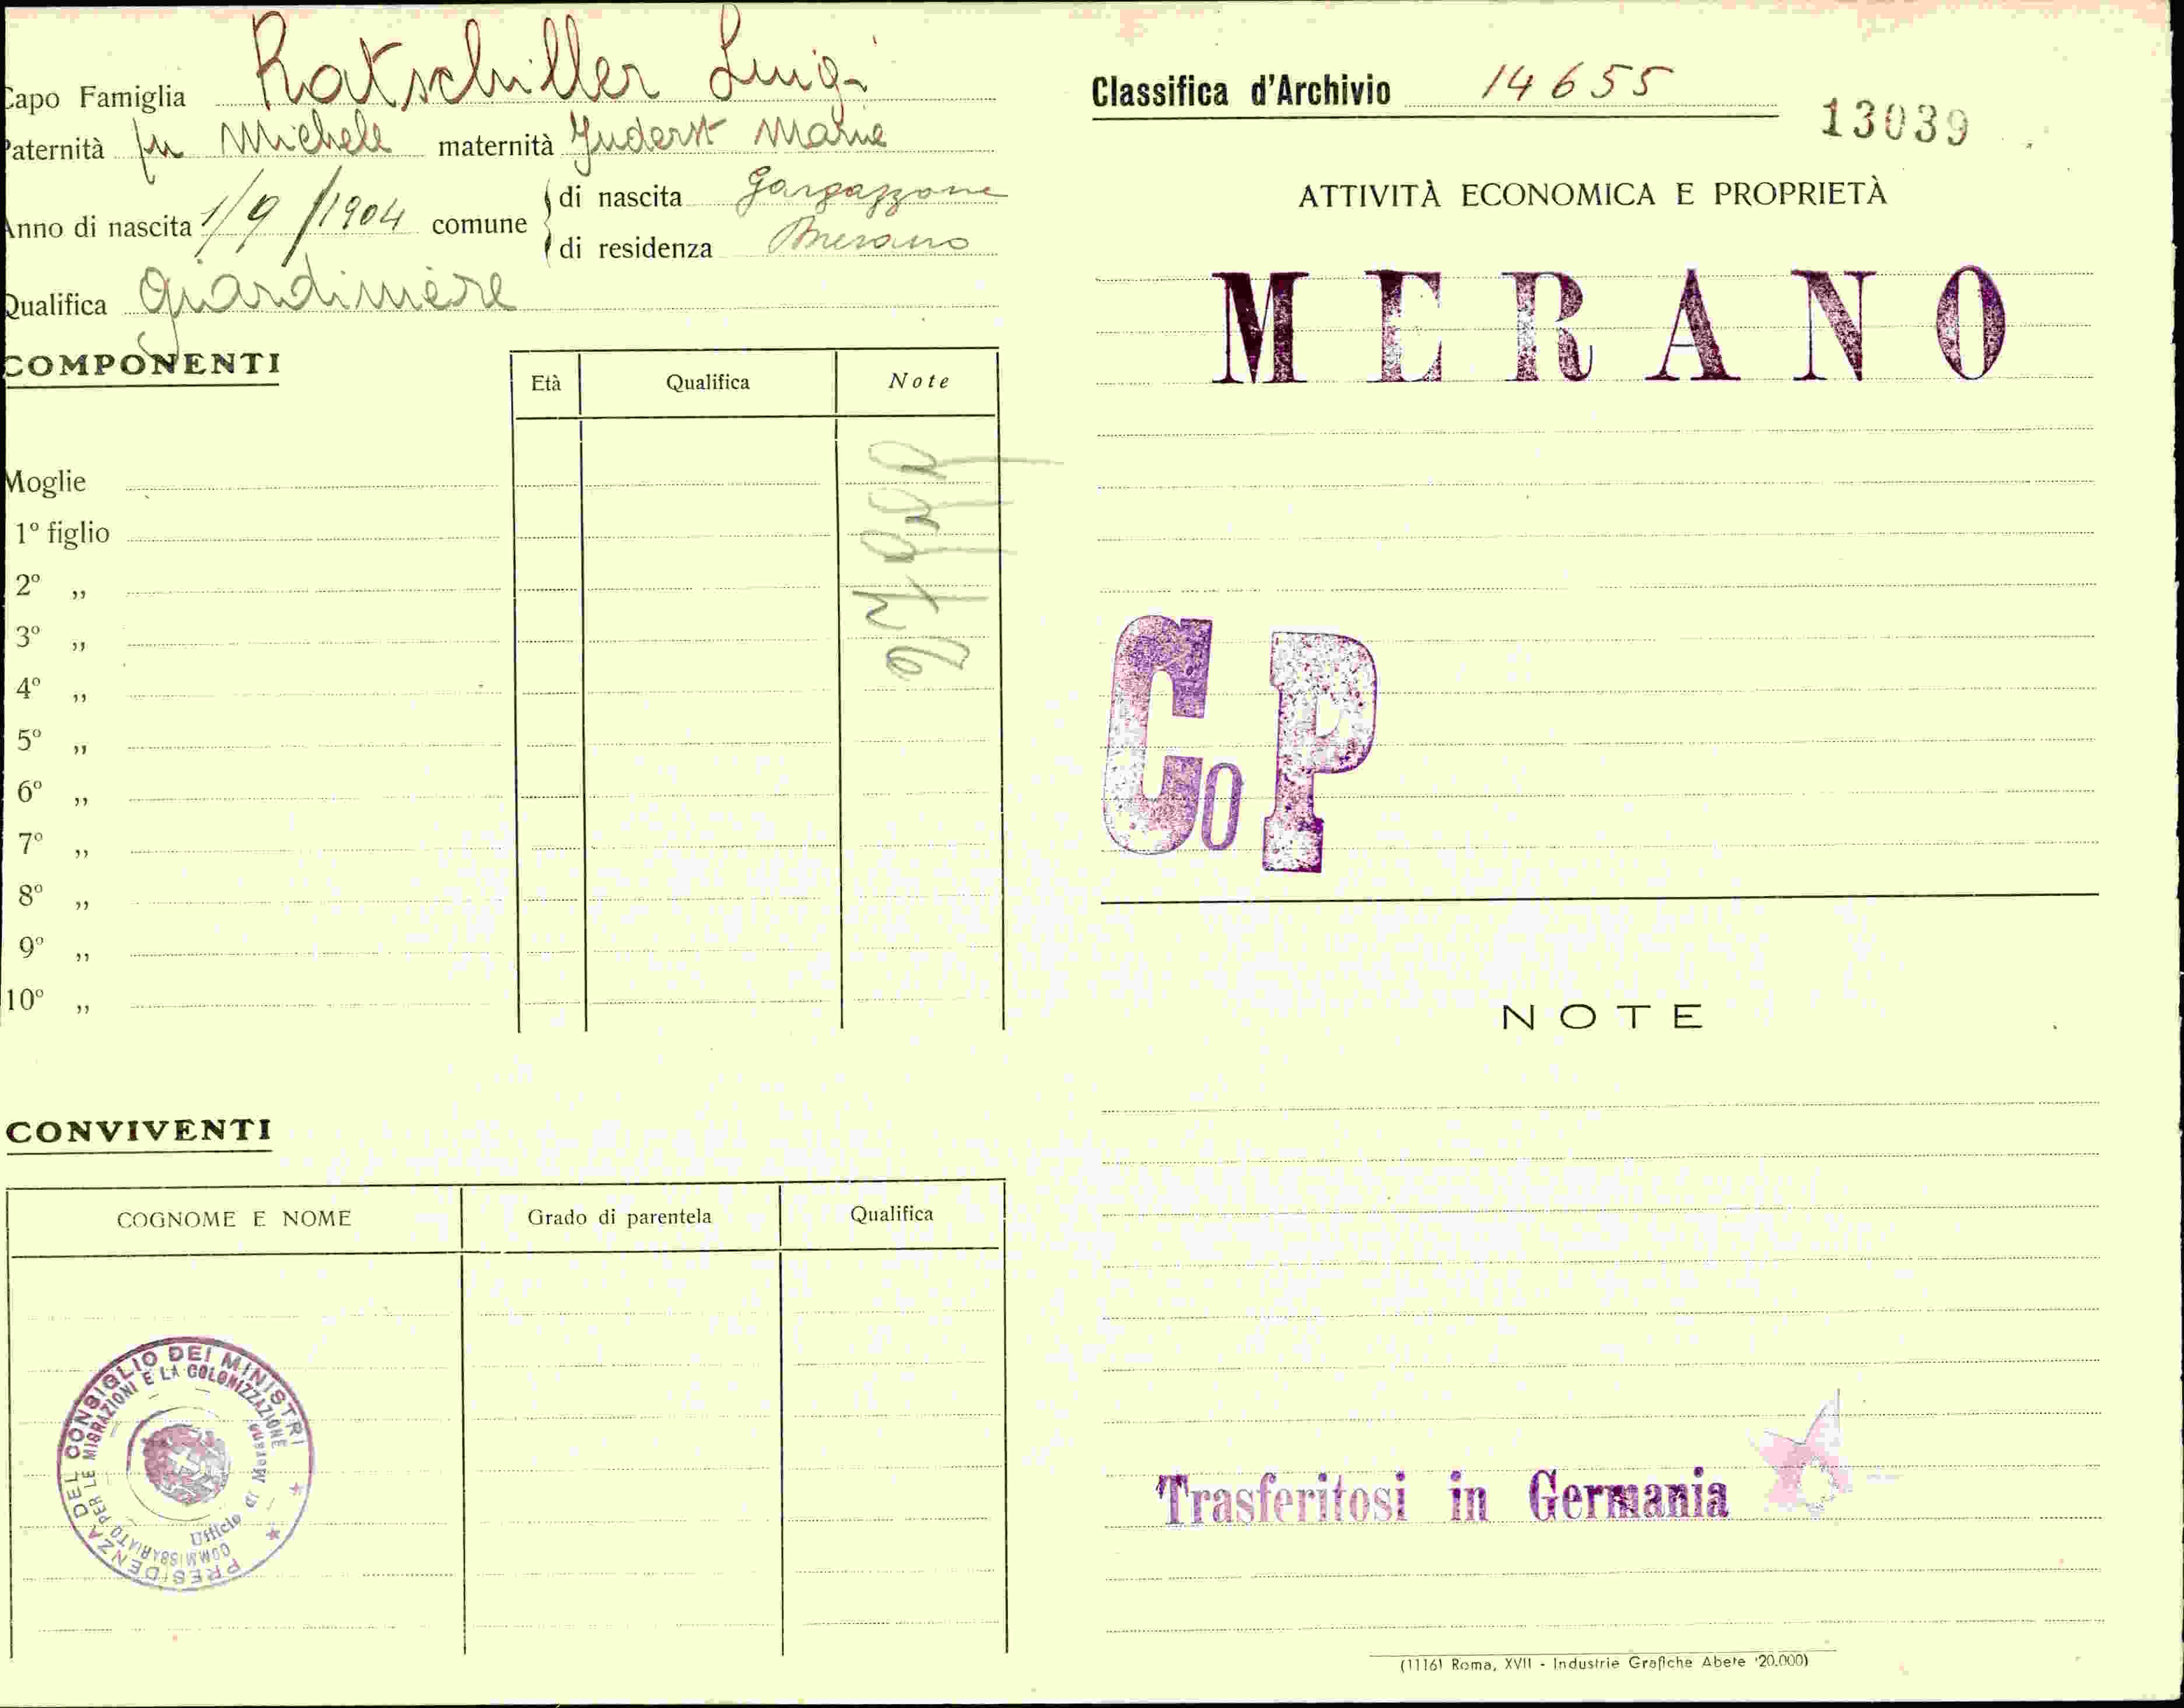 Capo Famiglia Ratschiller Luigi
Paternità fu Michele maternità Juderst Maria
Anno di nascita 1/9/1904 comune di nascita Gargazzone
di residenza Merano
Qualifica giardiniere
COMPONENTI
Età Qualifica Note
Moglie
1° figlio
2° „
3° „
4° „
5° „
6° „
7° „
8° „
9° „
10° „
CONVIVENTI
COGNOME E NOME Grado di parentela Qualifica
PRESIDENZA DEL CONSIGLIO DEI MINISTRI
COMMISSARIATO PER LE MIGRAZIONI E LA COLONIZZAZIONE
Ufficio di Merano
Classifica d'Archivio 14655
13039
ATTIVITÀ ECONOMICA E PROPRIETÀ
MERANO
Co P
NOTE
Trasferitosi in Germania
(1116) Roma, XVII - Industrie Grafiche Abete (20.000)